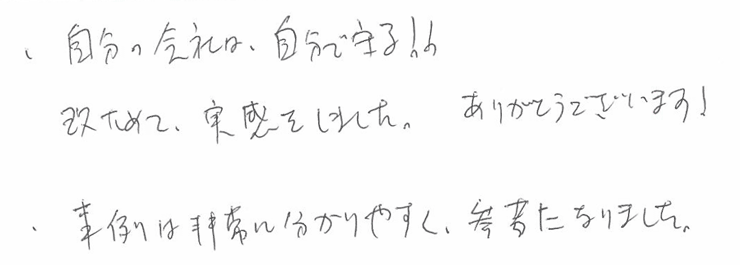 ・自分の会社は、自分で守る!!
改ためて、実感をしました。 ありがとうございます!
・事例は非常に分かりやすく、参考になりました。